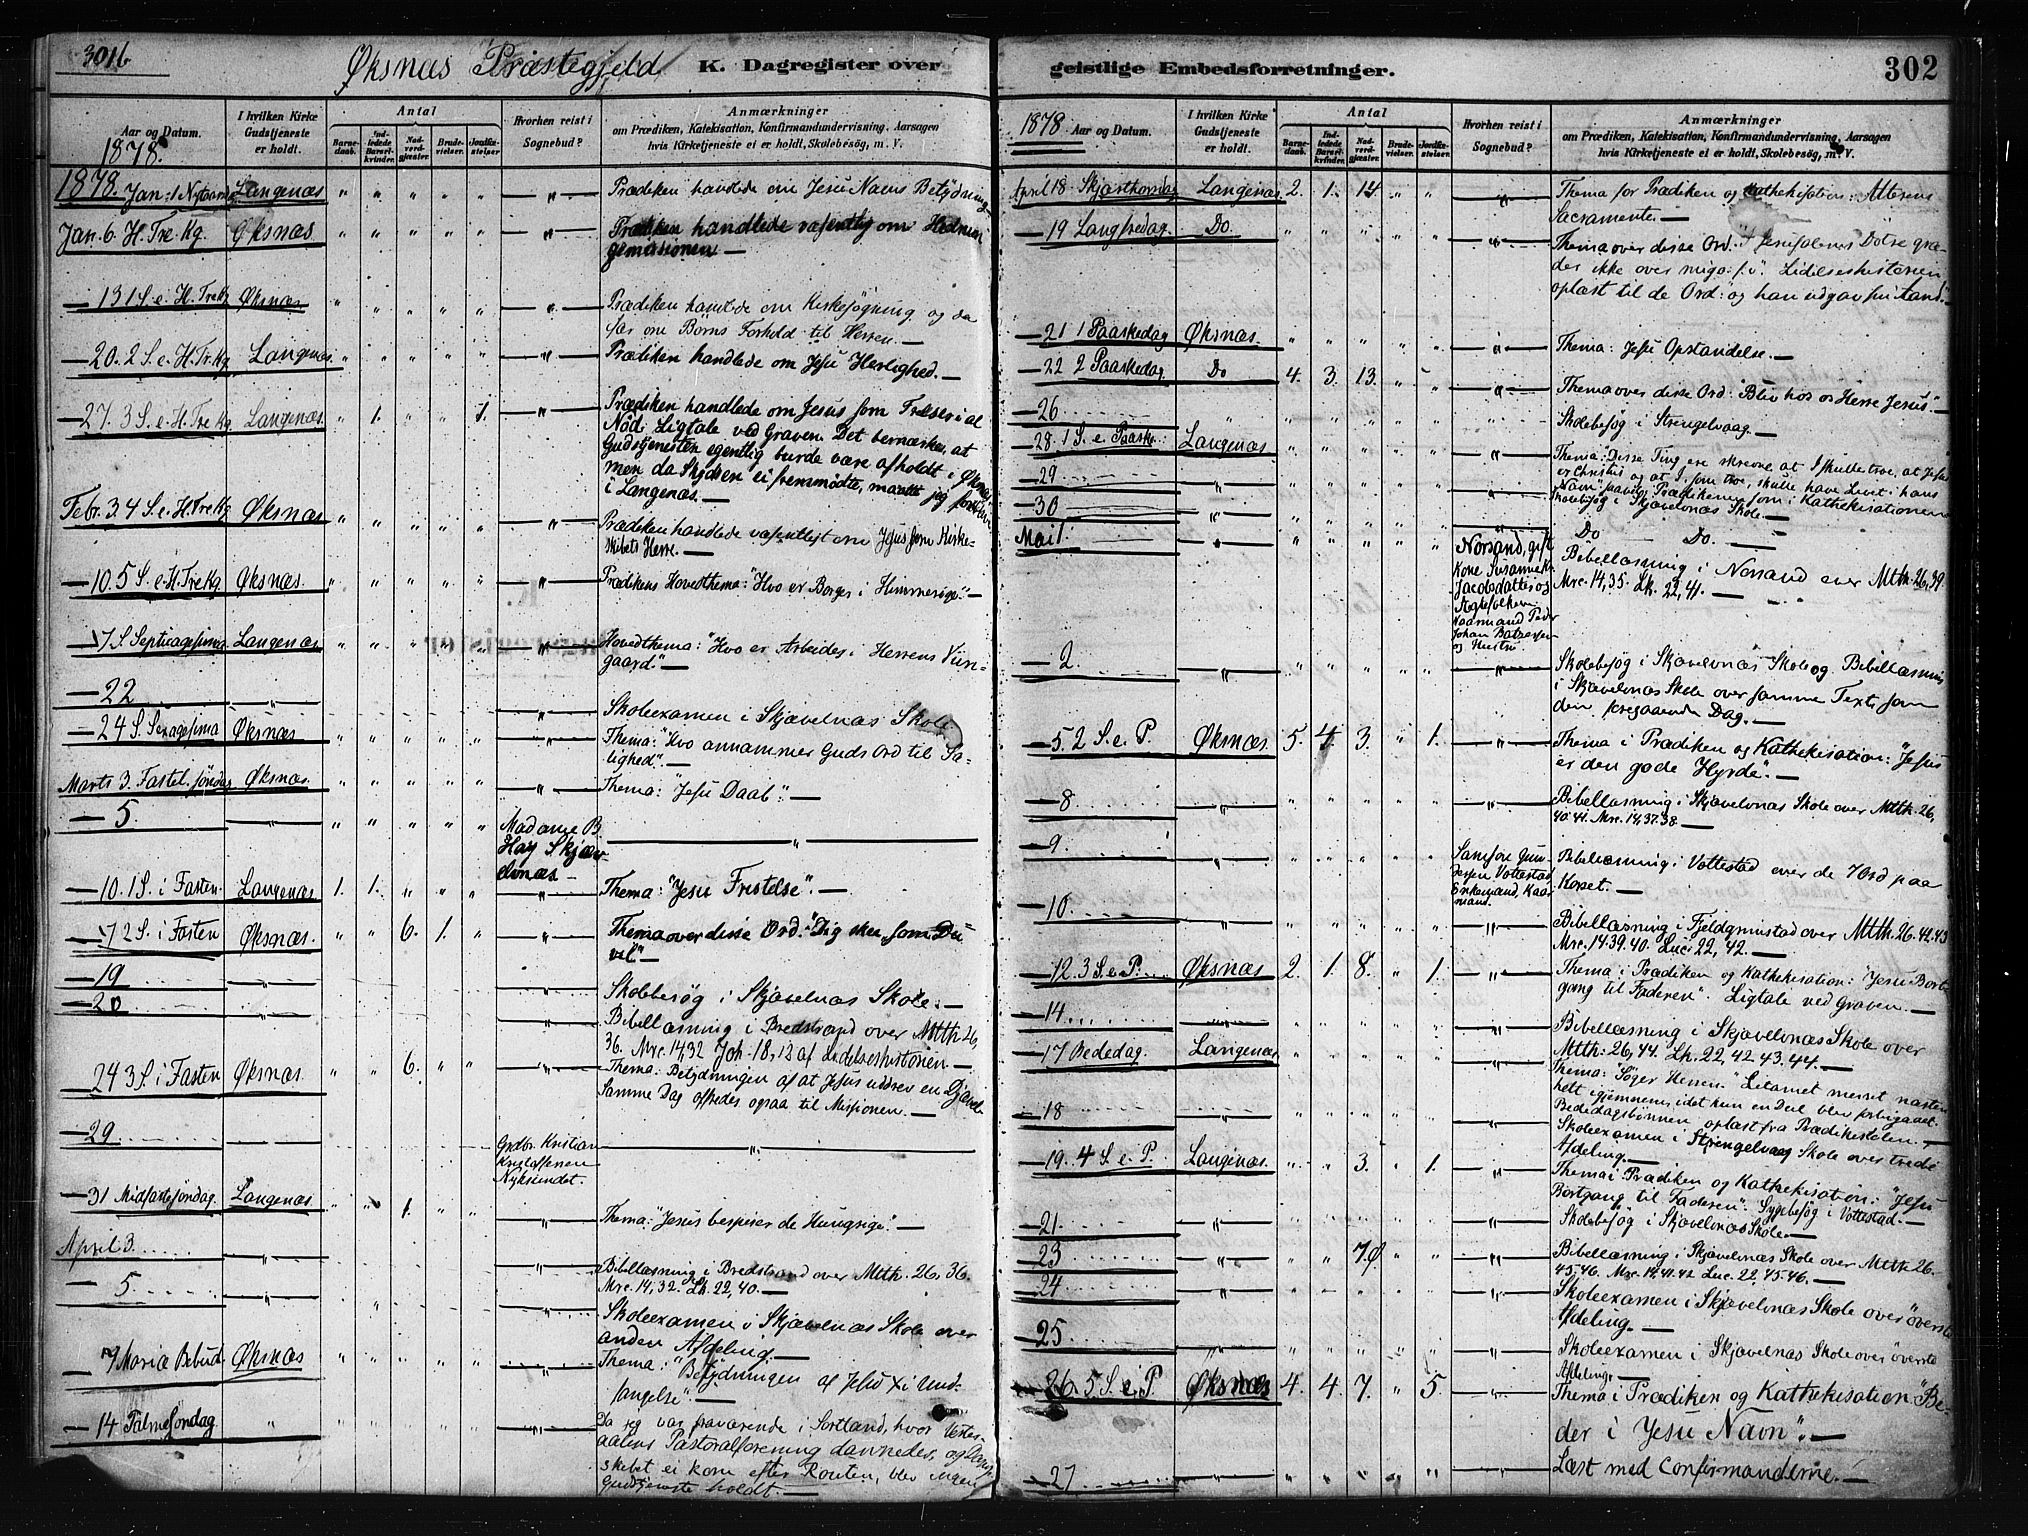 301b
Øksnæs Præstegjeld K. Dagregister over
Aar og Datum.
1878.
I hvilken Kirke Gudstjeneste er holdt.
Antal
Barnedaab.
Indledede Barselkvinder.
Nadvergjæster.
Brudevielser.
Jordfæstelser
Hvorhen reist i Sognebud?
Anmærkninger
om Prædiken, Katekisation, Konfirmandundervisning, Aarsagen
hvis Kirketjeneste ei er holdt, Skolebesøg, m. V.
1878. Jan. 1 Nytaarsd. Langenæs " " " " " " Prædiken handlede om Jesu Navns Betydning
Jan. 6. H. Tre Kg Øksnæs " " " " " " Prædiken handlede væsentlig om Hednin-
gemissionen —
— 13 1 S. e. H. Tre Kg Øksnæs " " " " " " Prædiken handlede om Kirkesøgning og da
især om Børns Forhold til Herren. —
— 20. 2 S. e. H. Tr. Kg Langenæs " " " " " " Prædiken handlede om Jesu Herlighed. —
— 27. 3 S. e. H. Tre Kg Langenæs. " 1. " " 1. " Prædiken handlede om Jesus som Frelser i al
Nød. Ligtale ved Graven. Det bemærkes, at
Gudstjenesten egentlig burde være afholdt i Øksnæs
men da Skydsen ei fremmødte, maatte jeg
i Langenæs. —
Febr. 3. 4 S. e. H. Tre Kg Øksnæs " " " " " " Prædiken handlede væsentligst om Jesus som Kirke-
skibets Herre. —
— 10. 5 S. e. H. Tre Kg Øksnæs. " " " " " " Prædikens Hovedthema: "Hvo er Borger i Himmerige". —
— 17 S. Septuagesima Langenæs " " " " " " Hovedthema: "Hvo er Arbeider i Herrens Viin-
gaard" —
— 22 — " Skoleexamen i Skjævelnæs Skole
— 24 S. Sexagesima Øksnæs " " " " " " Thema: "Hvo annammer Guds Ord til Sa-
lighed". —
Marts 3. Fastel. søndag Øksnæs. " " " " " " Thema: "Jesu Daab". —
— 5 — " — " " " " " Madame B. Hay Skjævelnæs — " —
— 10. 1 S. i Fasten. Langenæs 1. 1. " " " " Thema: "Jesu Fristelse". —
— 17 2 S. i Fasten Øksnæs. " " 6. 1. " " Thema over disse Ord: "Dig skee, som Du
vil" —
— 19 — " Skolebesøg i Skjævelnæs Skole. —
— 20 — " Bibellæsning i Bredstrand over Mtth. 26,
36. Mrc. 14,32 Joh. 18,12 af Lidelseshistorien —
— 24 3 S. i Fasten Øksnæs. " " 6. " " " Thema: Betydningen af at Jesus uddrev en Djævel
Samme Dag ofredes ogsaa til Missionen. —
— 29 — Grdbr. Kristian Kristoffersen Nyksundet — " —
— 31 Midfastesøndag. Langenæs " " 1. " " " Thema: "Jesus bespiser de Hungrige". —
April 3. — " — " Bibellæsning i Bredstrand over Mtth. 26, 36.
Mrc. 14,32. Lk. 22,40. —
— 5 — " — " Skoleexamen i Skjævelnæs Skole over
anden Afdeling. —
— 7 Mariæ Bebud. Øksnæs " " " " " " Thema: "Betydningen af Jesu Xi Und-
fangelse". —
— 14 Palmesøndag " Da jeg var fraværende i Sortland, hvor Vester-
aalens Pastoralforening dannedes, og Damp-
skibet ei kom efter Routen, blev ingen
Gudstjeneste holdt. —
302
geistlige Embedsforretninger.
1878 Aar og Datum.
I hvilken Kirke Gudstjeneste er holdt.
Antal
Barnedaab.
Indledede Barselkvinder.
Nadvergjæster.
Brudevielser.
Jordfæstelser.
Hvorhen reist i Sognebud?
Anmærkninger
om Prædiken, Katekisation, Konfirmandundervisning, Aarsagen
hvis Kirketjeneste ei er holdt, Skolebesøg, m. V.
April 18 Skjærthorsdag Langenæs. 2. 1. 14. " " " Thema for Prædiken og Kathekisation: Alterens
Sacramente. —
— 19 Langfredag. Do. " " " " " " Thema over disse Ord: "I Jerusalems Døtre græ-
der ikke over mig o.s.v." Lidelseshistorien
oplæst til de Ord: "og han udgav sin Aand".
— 21 1 Paaskedag Øksnæs. " " " " " " Thema: Jesu Opstandelse. —
— 22 2 Paaskedag. Do 4. 3. 13. " " " Thema over disse Ord: "Bliv hos os Herre Jesus". —
— 26 " Skolebesøg i Strengelvaag. —
— 28. 1 S. e. Paaske. Langenæs " " " " " " Thema: Disse Ting ere skrevne at I skulle troe, at Jesus
er Christus og at I, som troe, skulle have Livet i hans
Navn", saavel i Prædikenen som i Kathekisationen
— 29 — " — " Skolebesøg i Skjævelnæs Skole. —
— 30 — " — " Do — Do. —
Mai 1. — " — Norsand, gift Kone Susanna K. Jacobsdatter og Ægtefolkene Naarmand Peder Johan Baltzersen og Hustru Bibellæsning i Norsand over Mtth. 26, 39.
Mrc. 14,35. Lk. 22, 41. —
— 2 — " — " Skolebesøg i Skjævelnæs Skole og Bibellæsning
i Skjævelnæs Skole over samme Text, som
den foregaaende Dag. —
— 5. 2 S. e. P. Øksnæs. 5. 4. 3. " 1. " Thema i Prædiken og Kathekisation: "Jesus
er den gode Hyrde". —
— 8 — " — " Bibellæsning i Skjævelnæs Skole over Mtth. 26,
40. 41. Mrc. 14,37.38. —
— 9. — " — Vottestad Bibellæsning i Vottestad over de 7 Ord paa
Korset. —
— 10. — " — " Bibellæsning i Fjeldgrunstad over Mtth. 26. 42.43
Mrc. 14.39.40. Luc. 22, 42. —
— 12. 3 S. e. P. Øksnæs 2. 1. 8. " 1. " Thema i Prædiken og Kathekisation: "Jesu Bort-
gang til Faderen". Ligtale ved Graven. —
— 14 — " — " Bibellæsning i Skjævelnæs Skole over
Mtth: 26,44. Lk. 22 42 43.44. —
— 17 Bededag. Langenæs " " " " " " Thema: "Søger Herren." Litaniet messet næsten
helt igjennem, idet kun en Deel blev forbigaaet.
Bededagsbønnen oplæst fra Prædikestolen. —
— 18 — " — " Skoleexamen i Strengelvaag Skole over tredie
Afdeling. —
— 19. 4 S. e. P. Langenæs. " " 3. " 1. " Thema i Prædiken og Kathekisation: "Jesu
Bortgang til Faderen". Sygebesøg i Vottestad. —
— 21. — " — " Skolebesøg i Skjævelnæs Skole. —
— 23 — " " " " " Bibellæsning i Skjævelnæs Skole over Mtth 26.
45.46. Mrc. 14,41.42 Luc. 22, 45.46. —
— 24 — " — " Skoleexamen i Skjævelnæs Skole over øverste
Afdeling. —
— 25 — " — " Skoleexamen i Skjævelnæs Skole over øverste
Afdeling. —
— 26. 5 S. e. P. Øksnæs 4. 4. 7. " 5. " Thema i Prædiken og Kathekisation "Be-
der i Jesu Navn". —
— 27 — " — " Læst med Confirmanderne. —